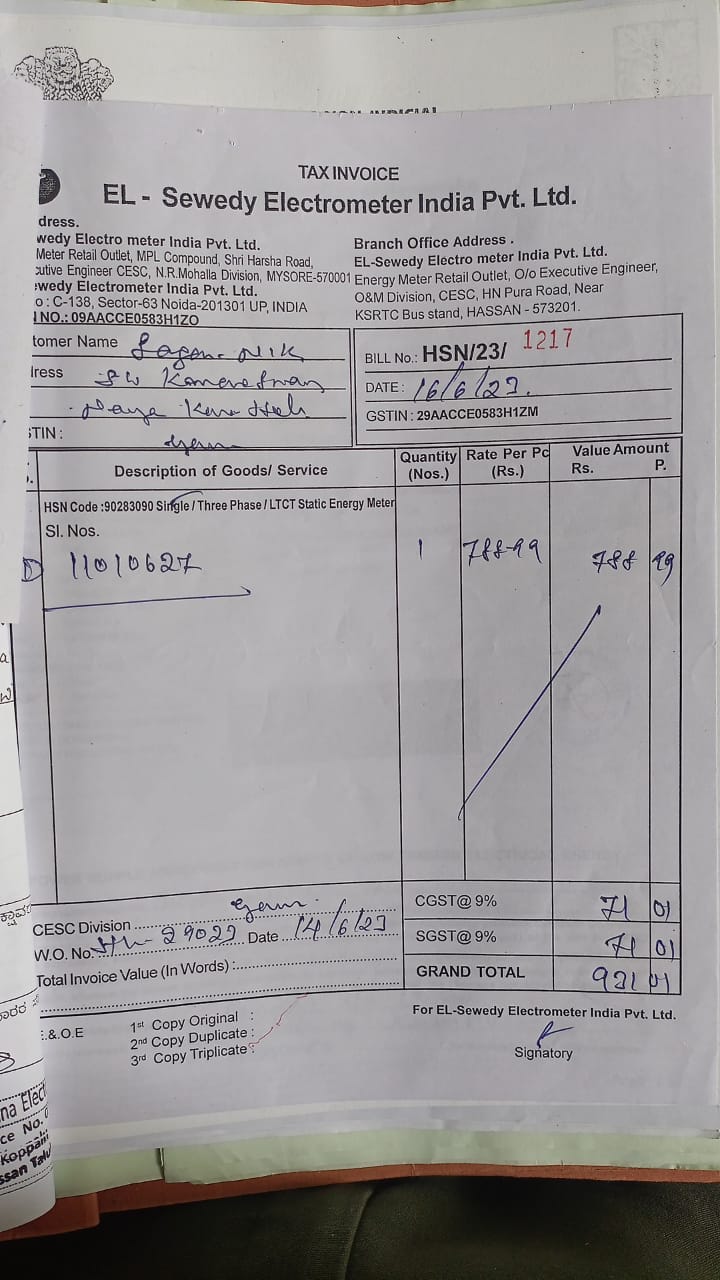 TAX INVOICE
EL - Sewedy Electrometer India Pvt. Ltd.
dress.
wedy Electro meter India Pvt. Ltd.
Meter Retail Outlet, MPL Compound, Shri Harsha Road,
cutive Engineer CESC, N.R.Mohalla Division, MYSORE-570001
ewedy Electrometer India Pvt. Ltd.
o : C-138, Sector-63 Noida-201301 UP, INDIA
NO.: 09AACCE0583H1ZO
Branch Office Address .
EL-Sewedy Electro meter India Pvt. Ltd.
Energy Meter Retail Outlet, O/o Executive Engineer,
O&M Division, CESC, HN Pura Road, Near
KSRTC Bus stand, HASSAN - 573201.
tomer Name
dress
STIN :
BILL No.: HSN/23/ 1217
DATE : 16/6/23.
GSTIN : 29AACCE0583H1ZM
Description of Goods/ Service Quantity (Nos.) Rate Per Pc (Rs.) Value Amount Rs. P.
HSN Code :90283090 Single / Three Phase / LTCT Static Energy Meter
Sl. Nos.
11010627 1 788-99 788 99
CESC Division
W.O. No. 29023 Date 14/6/23
Total Invoice Value (In Words) :
CGST@ 9% 71 01
SGST@ 9% 71 01
GRAND TOTAL 931 01
E.&.O.E
1st Copy Original :
2nd Copy Duplicate :
3rd Copy Triplicate :
For EL-Sewedy Electrometer India Pvt. Ltd.
Signatory
na Elect
ce No.
Koppal
ssan Talu